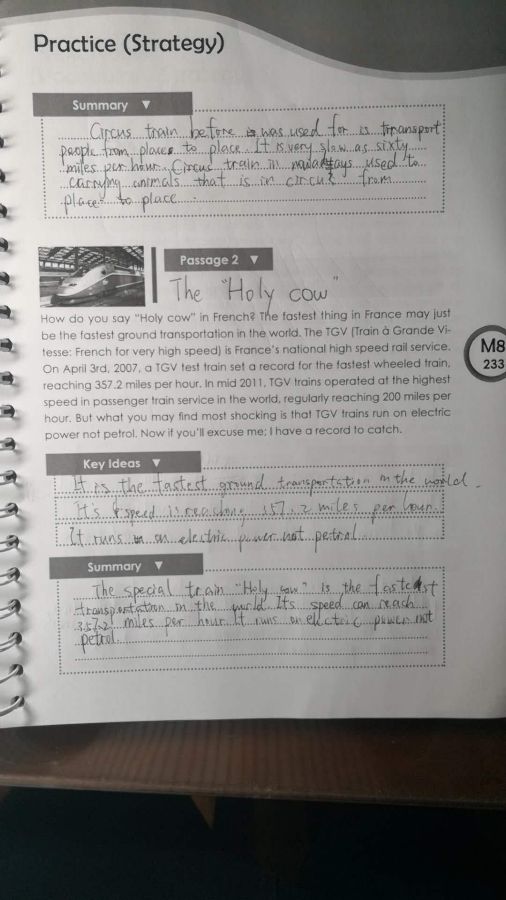 Practice (Strategy)
Summary ▼
Circus train before was used for is transport
people from places to place. It is very slow as sixty
miles per hour. Circus train in nowadays used to
carrying animals that is in circus from
place to place.
Passage 2 ▼
The "Holy cow"
How do you say "Holy cow" in French? The fastest thing in France may just
be the fastest ground transportation in the world. The TGV (Train à Grande Vi-
tesse: French for very high speed) is France's national high speed rail service.
On April 3rd, 2007, a TGV test train set a record for the fastest wheeled train,
reaching 357.2 miles per hour. In mid 2011, TGV trains operated at the highest
speed in passenger train service in the world, regularly reaching 200 miles per
hour. But what you may find most shocking is that TGV trains run on electric
power not petrol. Now if you'll excuse me; I have a record to catch.
M8
233
Key Ideas ▼
It is the fastest ground transportation in the world.
It's speed is reaching 357.2 miles per hour.
It runs on electric power not petrol.
Summary ▼
The special train "Holy cow" is the fastest
transportation in the world. It's speed can reach
357.2 miles per hour. It runs on electric power not
petrol.